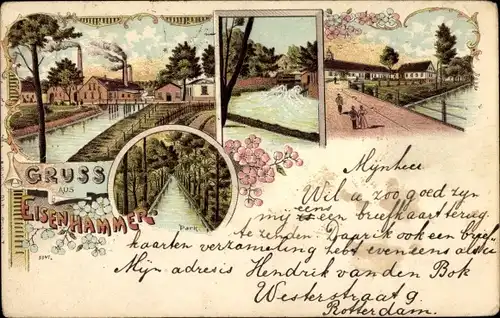 GRUSS
AUS
EISENHAMMER.
Park
Mijnheer
Wil u zoo goed zijn
mij eens een briefkaart terug
te zenden. Daar ik ook een brief
kaarten verzameling heb evenals u
Mijn adresis Hendrik van den Bok
Westerstraat 9
Rotterdam.